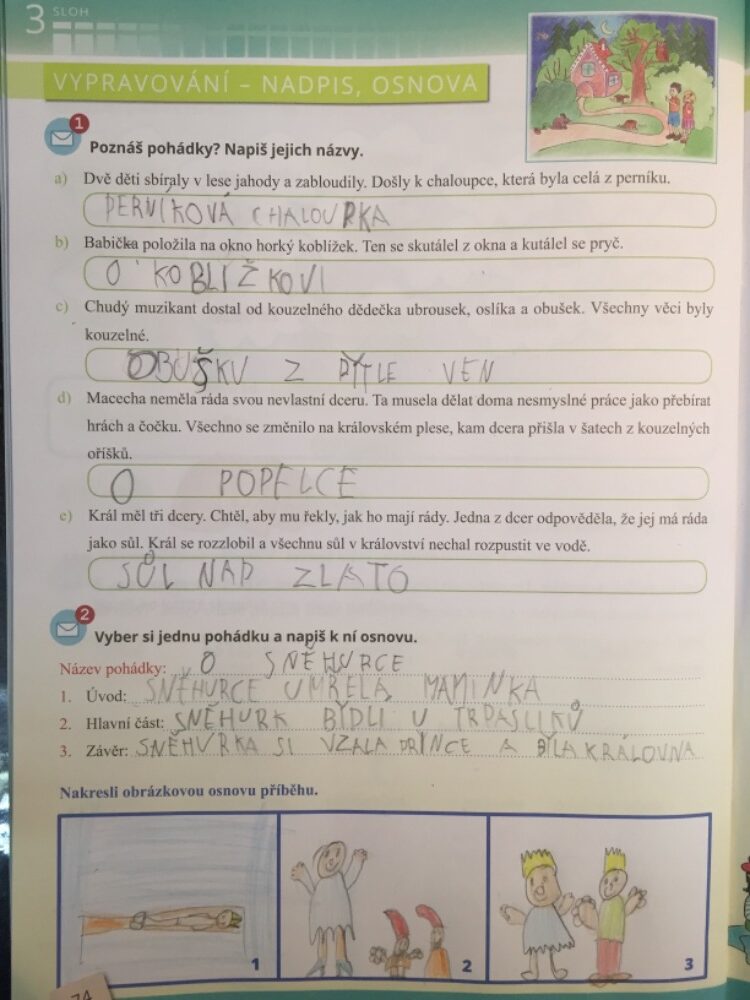 3 SLOH
VYPRAVOVÁNÍ – NADPIS, OSNOVA
1
Poznáš pohádky? Napiš jejich názvy.
a) Dvě děti sbíraly v lese jahody a zabloudily. Došly k chaloupce, která byla celá z perníku.
PERNÍKOVÁ CHALOUPKA
b) Babička položila na okno horký koblížek. Ten se skutálel z okna a kutálel se pryč.
O KOBLÍŽKOVI
c) Chudý muzikant dostal od kouzelného dědečka ubrousek, oslíka a obušek. Všechny věci byly
kouzelné.
OBUŠKU Z PYTLE VEN
d) Macecha neměla ráda svou nevlastní dceru. Ta musela dělat doma nesmyslné práce jako přebírat
hrách a čočku. Všechno se změnilo na královském plese, kam dcera přišla v šatech z kouzelných
oříšků.
O POPELCE
e) Král měl tři dcery. Chtěl, aby mu řekly, jak ho mají rády. Jedna z dcer odpověděla, že jej má ráda
jako sůl. Král se rozzlobil a všechnu sůl v království nechal rozpustit ve vodě.
SŮL NAD ZLATO
2
Vyber si jednu pohádku a napiš k ní osnovu.
Název pohádky: O SNĚHURCE
1. Úvod: SNĚHURCE UMŘELA MAMINKA
2. Hlavní část: SNĚHURK BYDLI U TRPASLIKŮ
3. Závěr: SNĚHURKA SI VZALA PRINCE A BYLA KRÁLOVNA
Nakresli obrázkovou osnovu příběhu.
1 2 3
74